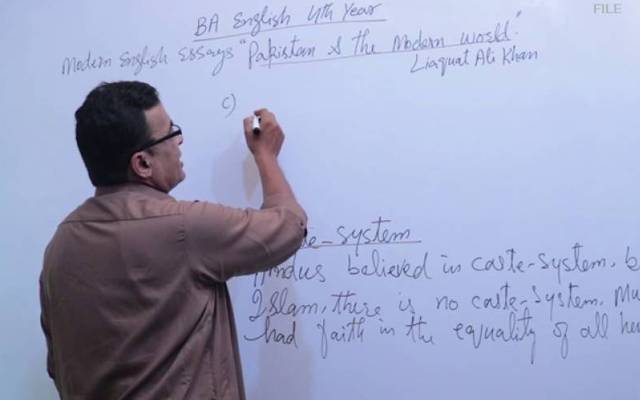 FILE
BA English 4th Year
Modern English Essays "Pakistan & the Modern World".
Liaquat Ali Khan
c)
-System
believed in caste-System, b
Islam, there is no caste-System. Mu
had faith in the equality of all hu